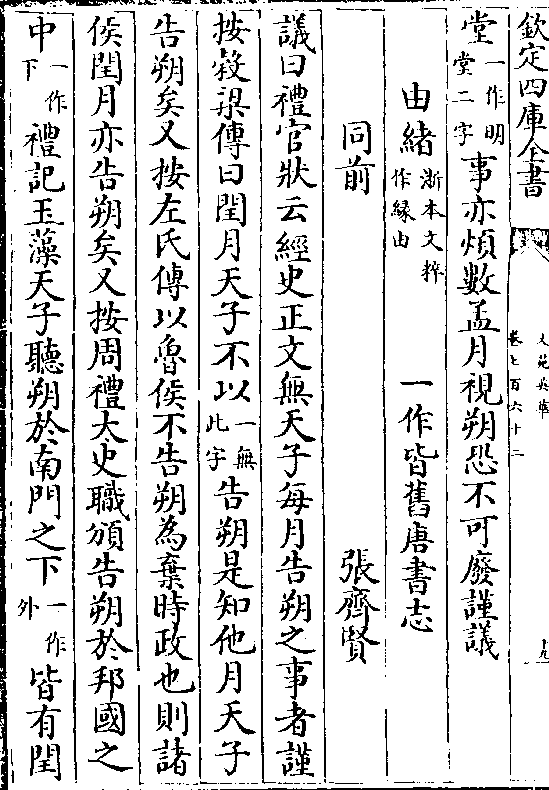 欽定四庫全書
文苑英華
卷七百六十二
十九
堂一作明堂二字事亦煩數孟月視朔恐不可廢謹議
由緒浙本文粹作緣由 一作皆舊唐書志
同前 張齊賢
議曰禮官狀云經史正文無天子每月告朔之事者謹
按穀梁傳曰閏月天子不以一無此字告朔是知他月天子
告朔矣又按左氏傳以魯侯不告朔為棄時政也則諸
侯閏月亦告朔矣又按周禮太史職頒告朔於邦國之
中一作下禮記玉藻天子聽朔於南門之下一作外皆有閏